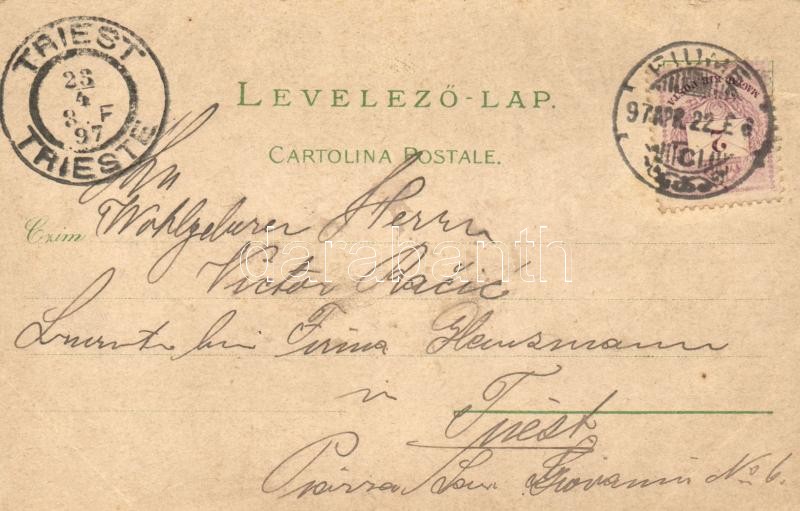 TRIEST
23
4
8. F
97
TRIESTE
LEVELEZŐ-LAP.
CARTOLINA POSTALE.
FIUME
97 APR. 22. E 6
MAGYAR KIR. POSTA
2
Czim
An
Wohlgeborer Herrn
Victor Račić
bei Firma
in
Triest
Piazza San Giovanni No 6.
darabanth